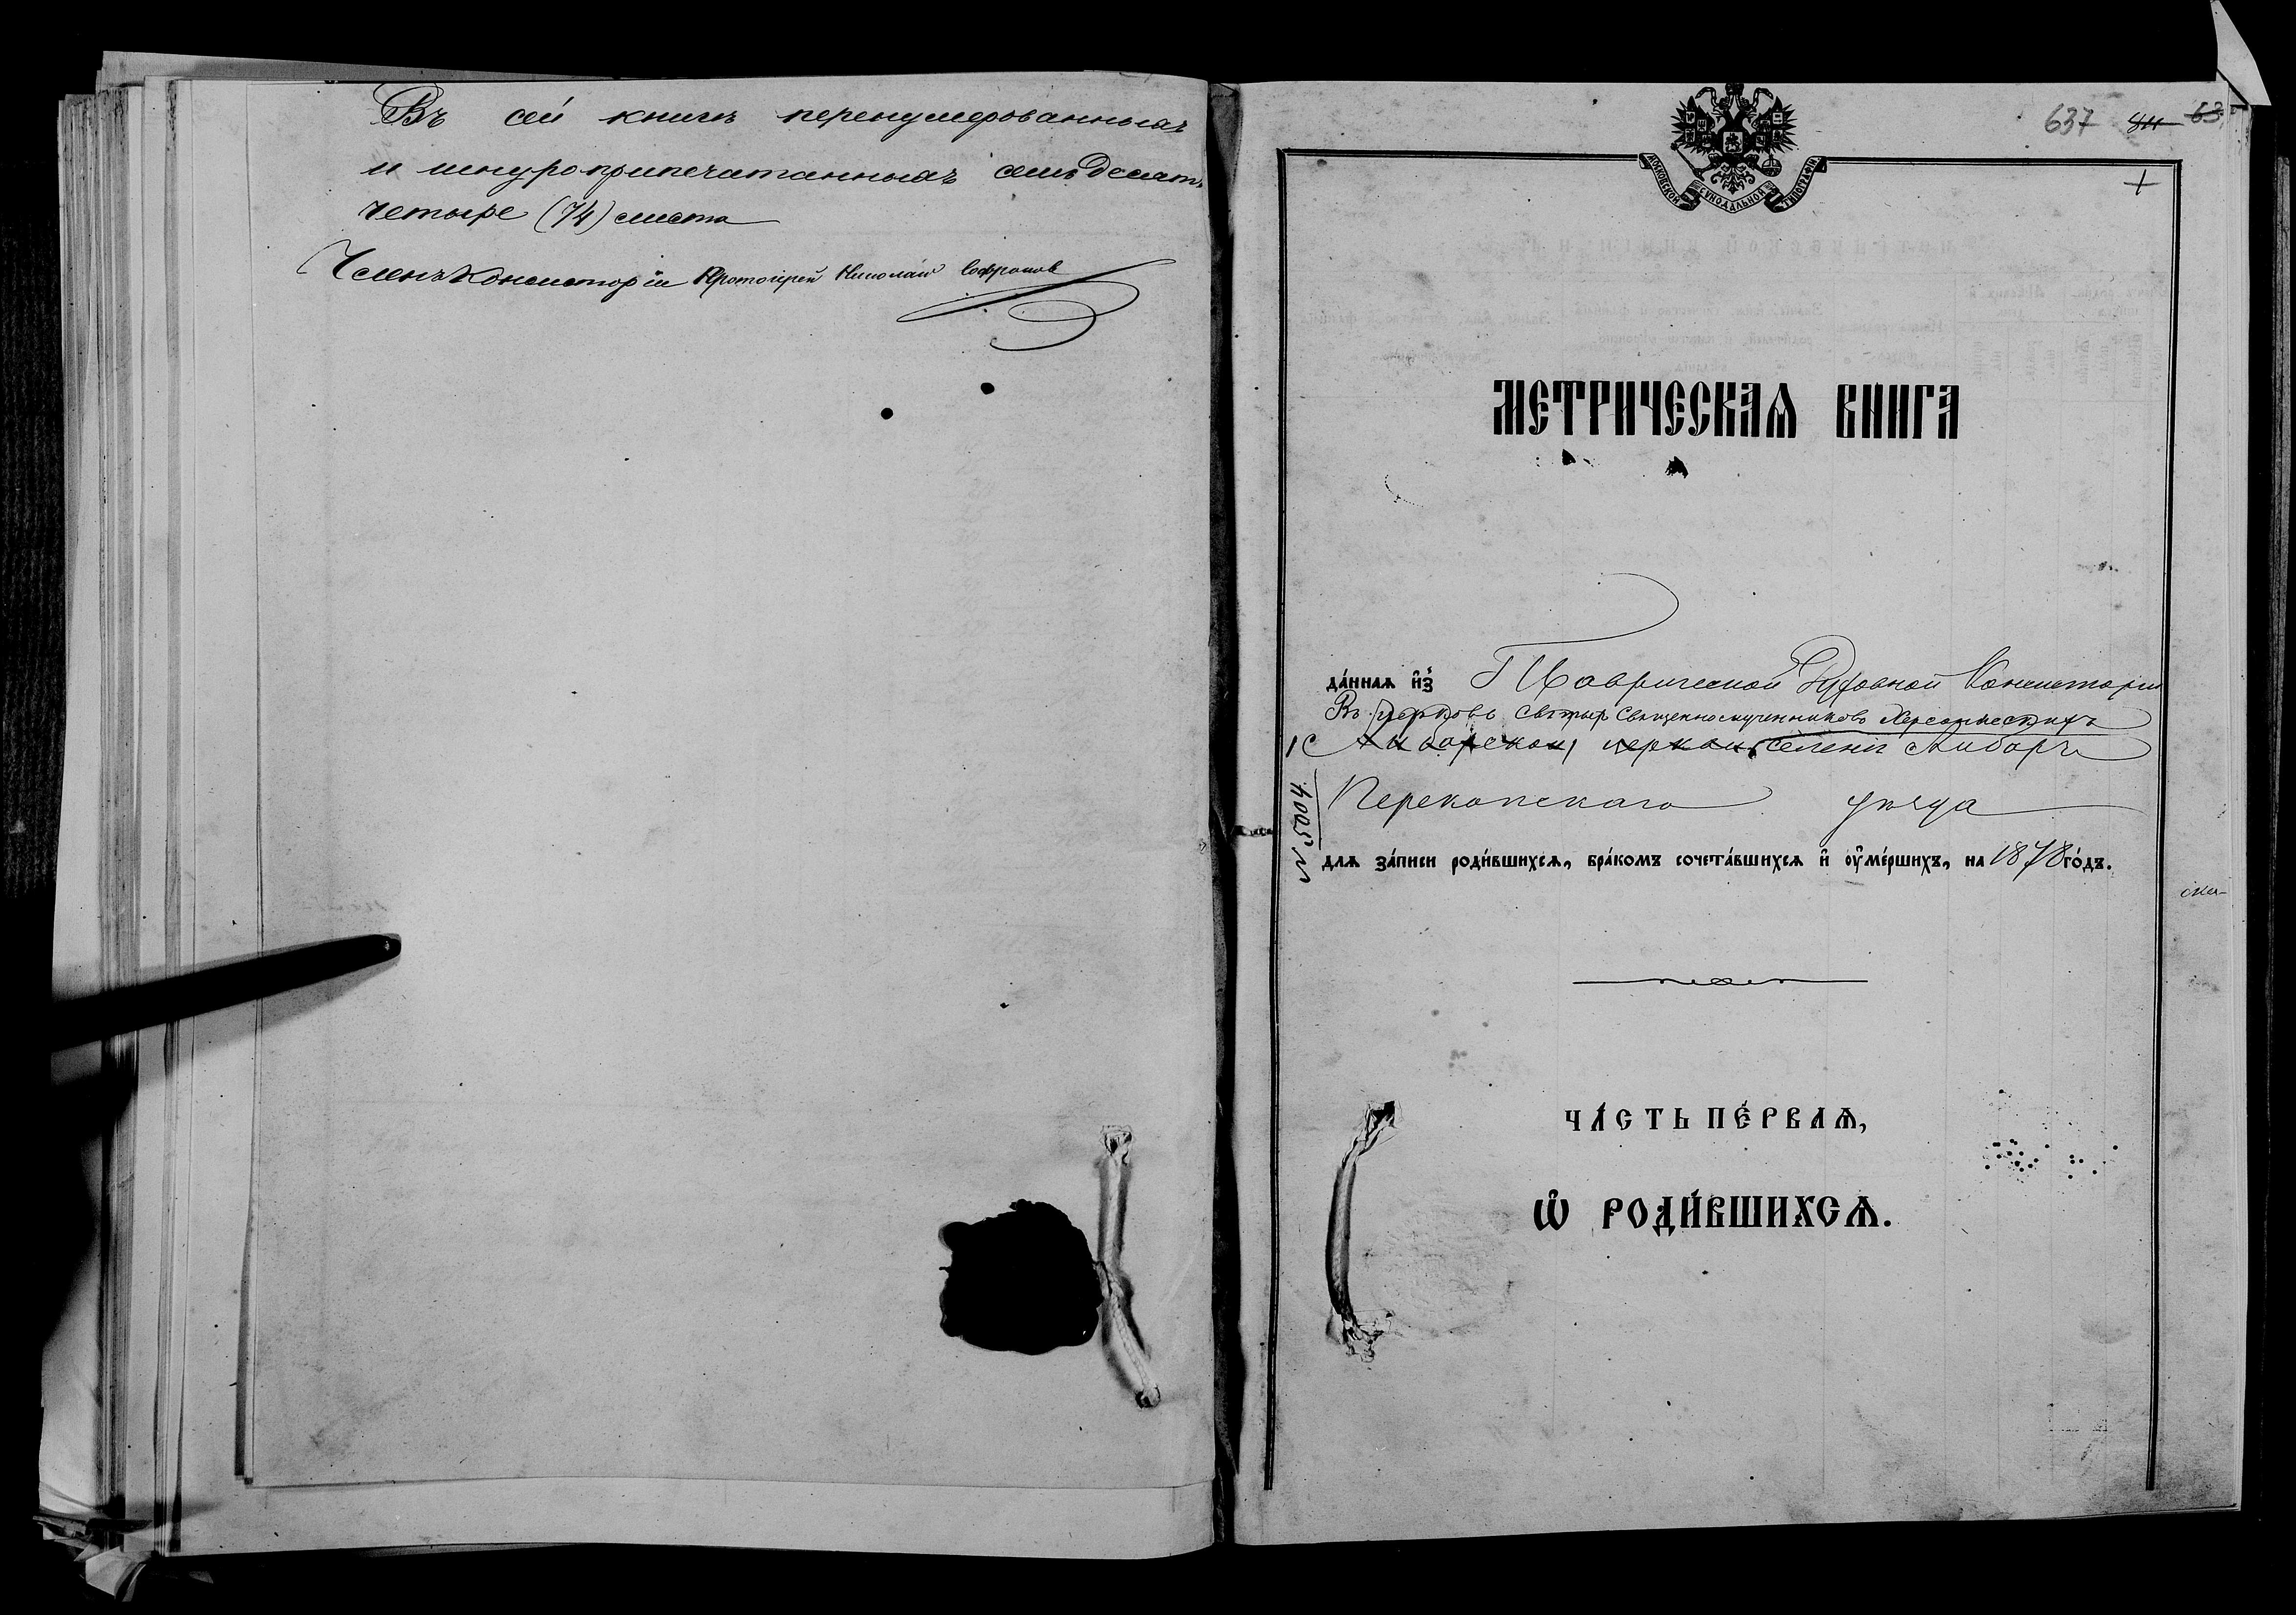 Въ сей книгѣ перенумерованныхъ
и шнуроприпечатанныхъ семьдесятъ
четыре (74) листа
Членъ Консисторіи Протоіерей Николай Софроновъ
637
63
МОСКОВСКОЙ СѴНОДАЛЬНОЙ ТИПОГРАФІИ
МЕТРИЧЕСКАѦ КНИГА
да́ннаѧ и҆з̾ Таврической Духовной Консисторіи
Въ церковь святыхъ Священномучениковъ Херсонескихъ
селенія Акибаръ
Перекопскаго уѣзда
№ 5004
длѧ за́писи роди́вшихсѧ, бра́комъ сочета́вшихсѧ и҆ ᲂу҆ме́ршихъ, на 1878 го́дъ.
ЧА́СТЬ ПЕ́РВАѦ,
Ѡ҆ РОДИ́ВШИХСѦ.